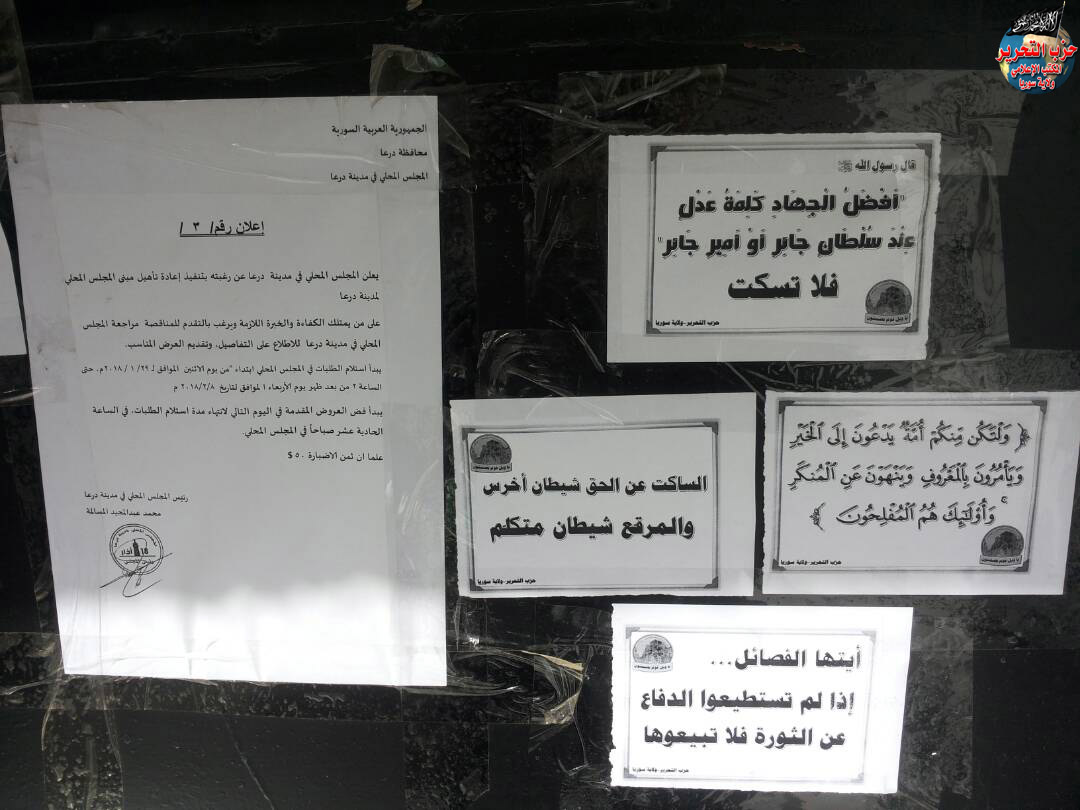 حزب التحرير
المكتب الإعلامي
ولاية سوريا
الجمهورية العربية السورية
محافظة درعا
المجلس المحلي في مدينة درعا
إعلان رقم/ ٣ /
يعلن المجلس المحلي في مدينة درعا عن رغبته بتنفيذ إعادة تأهيل مبنى المجلس المحلي
لمدينة درعا
على من يمتلك الكفاءة والخبرة اللازمة ويرغب بالتقدم للمناقصة مراجعة المجلس
المحلي في مدينة درعا للاطلاع على التفاصيل، وتقديم العرض المناسب.
يبدأ استلام الطلبات في المجلس المحلي ابتداء "من يوم الاثنين الموافق لـ ٢٩/ ١ /٢٠١٨م، حتى
الساعة ٢ من بعد ظهر يوم الأربعاء الموافق لتاريخ ٢٠١٨/٢/٨ م
يبدأ فض العروض المقدمة في اليوم التالي لانتهاء مدة استلام الطلبات، في الساعة
الحادية عشر صباحاً في المجلس المحلي.
علما ان ثمن الاضبارة ٥٠ $
رئيس المجلس المحلي في مدينة درعا
محمد عبدالمجيد المسالمة
قال رسول الله ﷺ
"أَفْضَلُ الْجِهَادِ كَلِمَةُ عَدْلٍ
عِنْدَ سُلْطَانٍ جَائِرٍ أَوْ أَمِيرٍ جَائِرٍ"
فلا تسكت
حزب التحرير-ولاية سوريا
الساكت عن الحق شيطان أخرس
والمرقع شيطان متكلم
حزب التحرير-ولاية سوريا
﴿ وَلْتَكُن مِّنكُمْ أُمَّةٌ يَدْعُونَ إِلَى الْخَيْرِ
وَيَأْمُرُونَ بِالْمَعْرُوفِ وَيَنْهَوْنَ عَنِ الْمُنكَرِ
وَأُوْلَٰٓئِكَ هُمُ الْمُفْلِحُونَ ﴾
حزب التحرير-ولاية سوريا
أيتها الفصائل...
إذا لم تستطيعوا الدفاع
عن الثورة فلا تبيعوها
حزب التحرير-ولاية سوريا